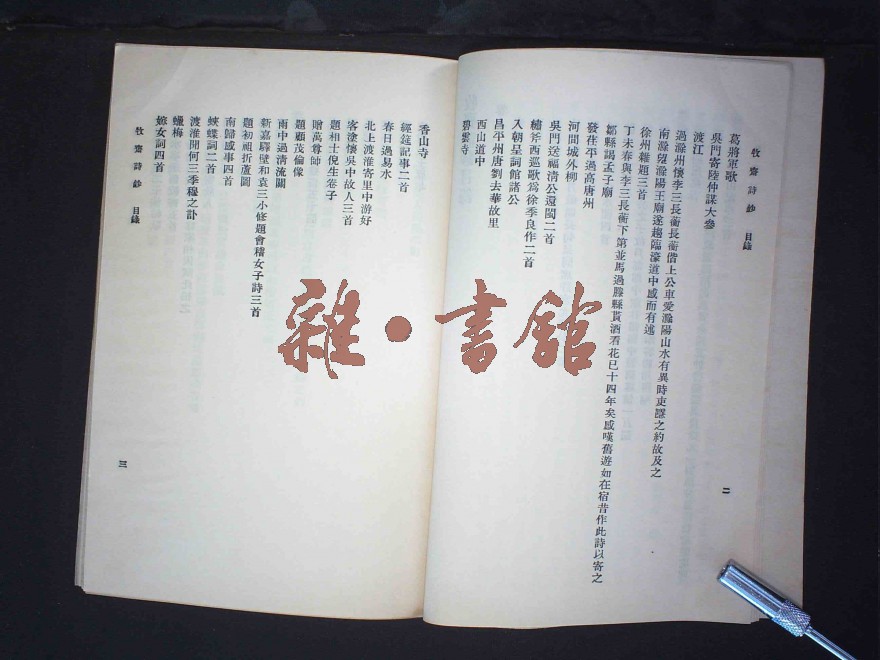 牧齋詩鈔 目錄
二
葛將軍歌
吳門寄陸仲謀大參
渡江
過滁州懷李三長蘅長蘅偕上公車愛滁陽山水有異時吏隱之約故及之
南滁望滁陽王廟遂趨臨濠道中感而有述
徐州雜題三首
丁未春與李三長蘅下第並馬過滕縣貰酒看花已十四年矣感嘆舊遊如在宿昔作此詩以寄之
鄒縣謁孟子廟
發茌平過高唐州
河間城外柳
吳門送福清公還閩二首
繡斧西巡歌爲徐季良作二首
入朝呈詞館諸公
昌平州唐劉去華故里
西山道中
碧雲寺
香山寺
經筵記事二首
春日過易水
北上渡淮寄里中游好
客塗懷吳中故人三首
題相士倪生卷子
贈萬尊師
題顧茂倫像
雨中過清流關
新嘉驛壁和袁三小修題會稽女子詩三首
題初祖折蘆圖
南歸感事四首
蛺蝶詞二首
渡淮聞何三季穆之訃
蠟梅
姬女詞四首
牧齋詩鈔 目錄
三
雜·書館